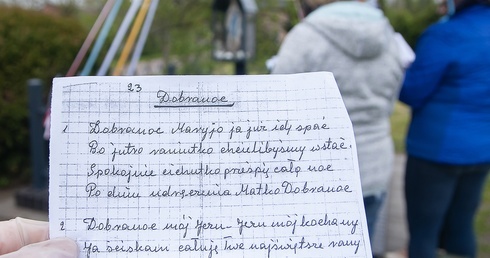 23
Dobranoc
1 Dobranoc Maryjo ja już idę spać
Bo jutro raniutko chcielibyśmy wstać.
Spokojnie cichutko prześpię całą noc
Po dniu udręczenia Matko Dobranoc
2. Dobranoc mój Jezu - Jezu mój kochany
Ja ściskam całuję twe najświętsze rany